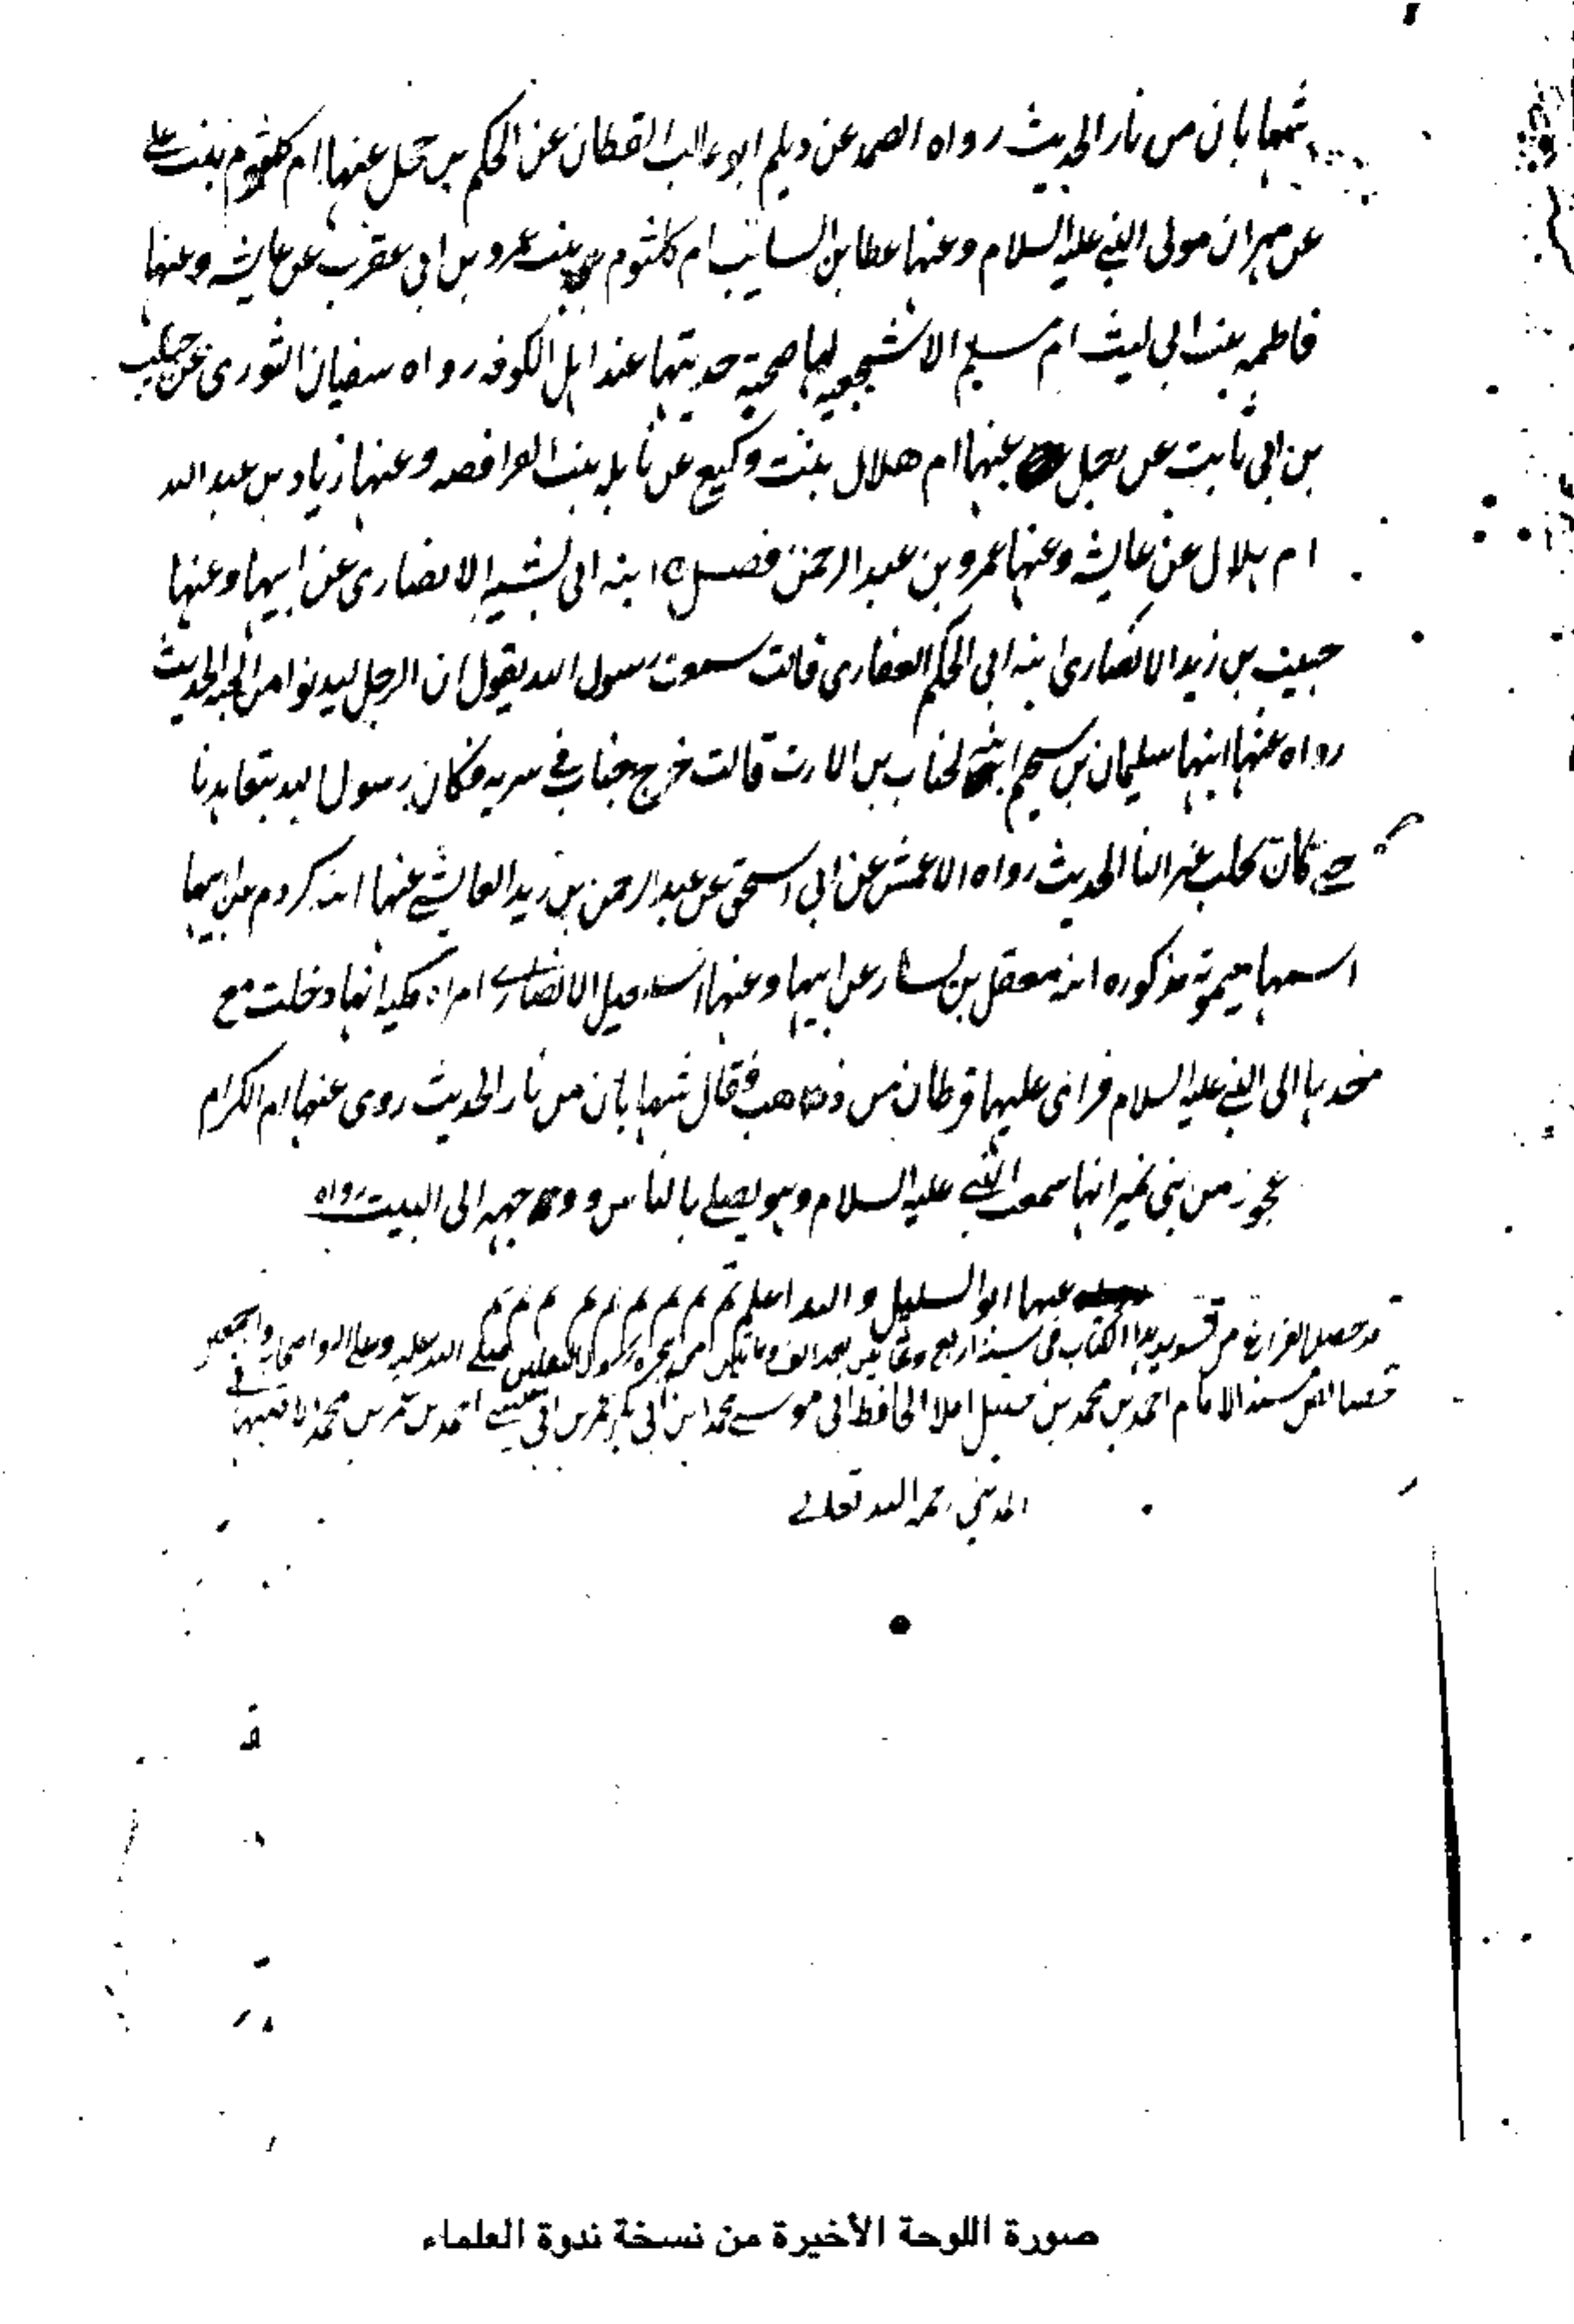 شهابان من نار الحديث رواه الصمد عن ديلم ابو غالب القطان عن الحكم بن جحل عنها ام كلثوم بنت علي
عن مهران مولى النبي عليه السلام وعنها عطا بن السايب ام كلثوم بنت عمرو بن ابي عقرب عن عايشه وعنها
فاطمه بنت ابي ليث ام سليم الاشجعيه لها صحبة حديثها عند اهل الكوفه رواه سفيان الثورى عن حبيب
بن ابي ثابت عن رجل عنها ام هلال بنت وكيع عن نايله بنت الفرافصه وعنها زياد بن عبد الله
ام بلال عن عايشه وعنها عمرو بن عبد الرحمن فصل ابنه ابي بشير الانصارى عن ابيها وعنها
حبيب بن زيد الانصارى ابنه ابي الحكم الغفارى قالت سمعت رسول الله يقول ان الرجل ليدنوا من الجنه الحديث
رواه عنها ابنها سليمان بن سحيم ابنة لخباب بن الارت قالت خرج خباب في سريه فكان رسول الله يتعاهدنا
حتى كان يحلب عنزا لنا الحديث رواه الاعمش عن ابي اسحق عن عبد الرحمن بن زيد العايشي عنها ابنة كردم عن ابيها
اسمها ميمونة مذكوره ابنة معقل بن يسار عن ابيها وعنها الانصارى امراة مكيه انها دخلت مع
الى النبي عليه السلام فراى عليها قرطان من ذهب فقال شهابان من نار الحديث روى عنها ام الكرام
عجوز من بني نمير انها سمعت النبي عليه السلام وهو يصلي بالناس ووجهه الى البيت رواه
عنها ابو السليل والله اعلم تم
قد حصل الفراغ من تسويد هذا الكتاب في سنة اربع وثمانين بعد الف ومايتين من هجرة رسول الثقلين صلى الله عليه وعلى اله واصحابه اجمعين
خصايص مسند الامام احمد بن محمد بن حنبل املا الحافظ ابي موسى محمد ابن ابي بكر عمر بن ابي عيسى احمد بن عمر بن محمد الاصبهاني
المديني رحمه الله تعالى
صورة اللوحة الأخيرة من نسخة ندوة العلماء